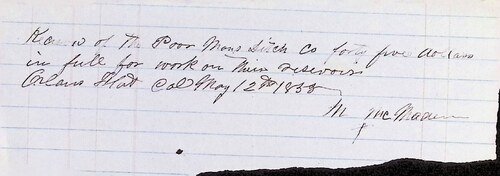 of The Poor Mans Ditch Co forty five dollars
in full for work on their reservoir
Orleans Flat Cal May 12th 1858
M Mc